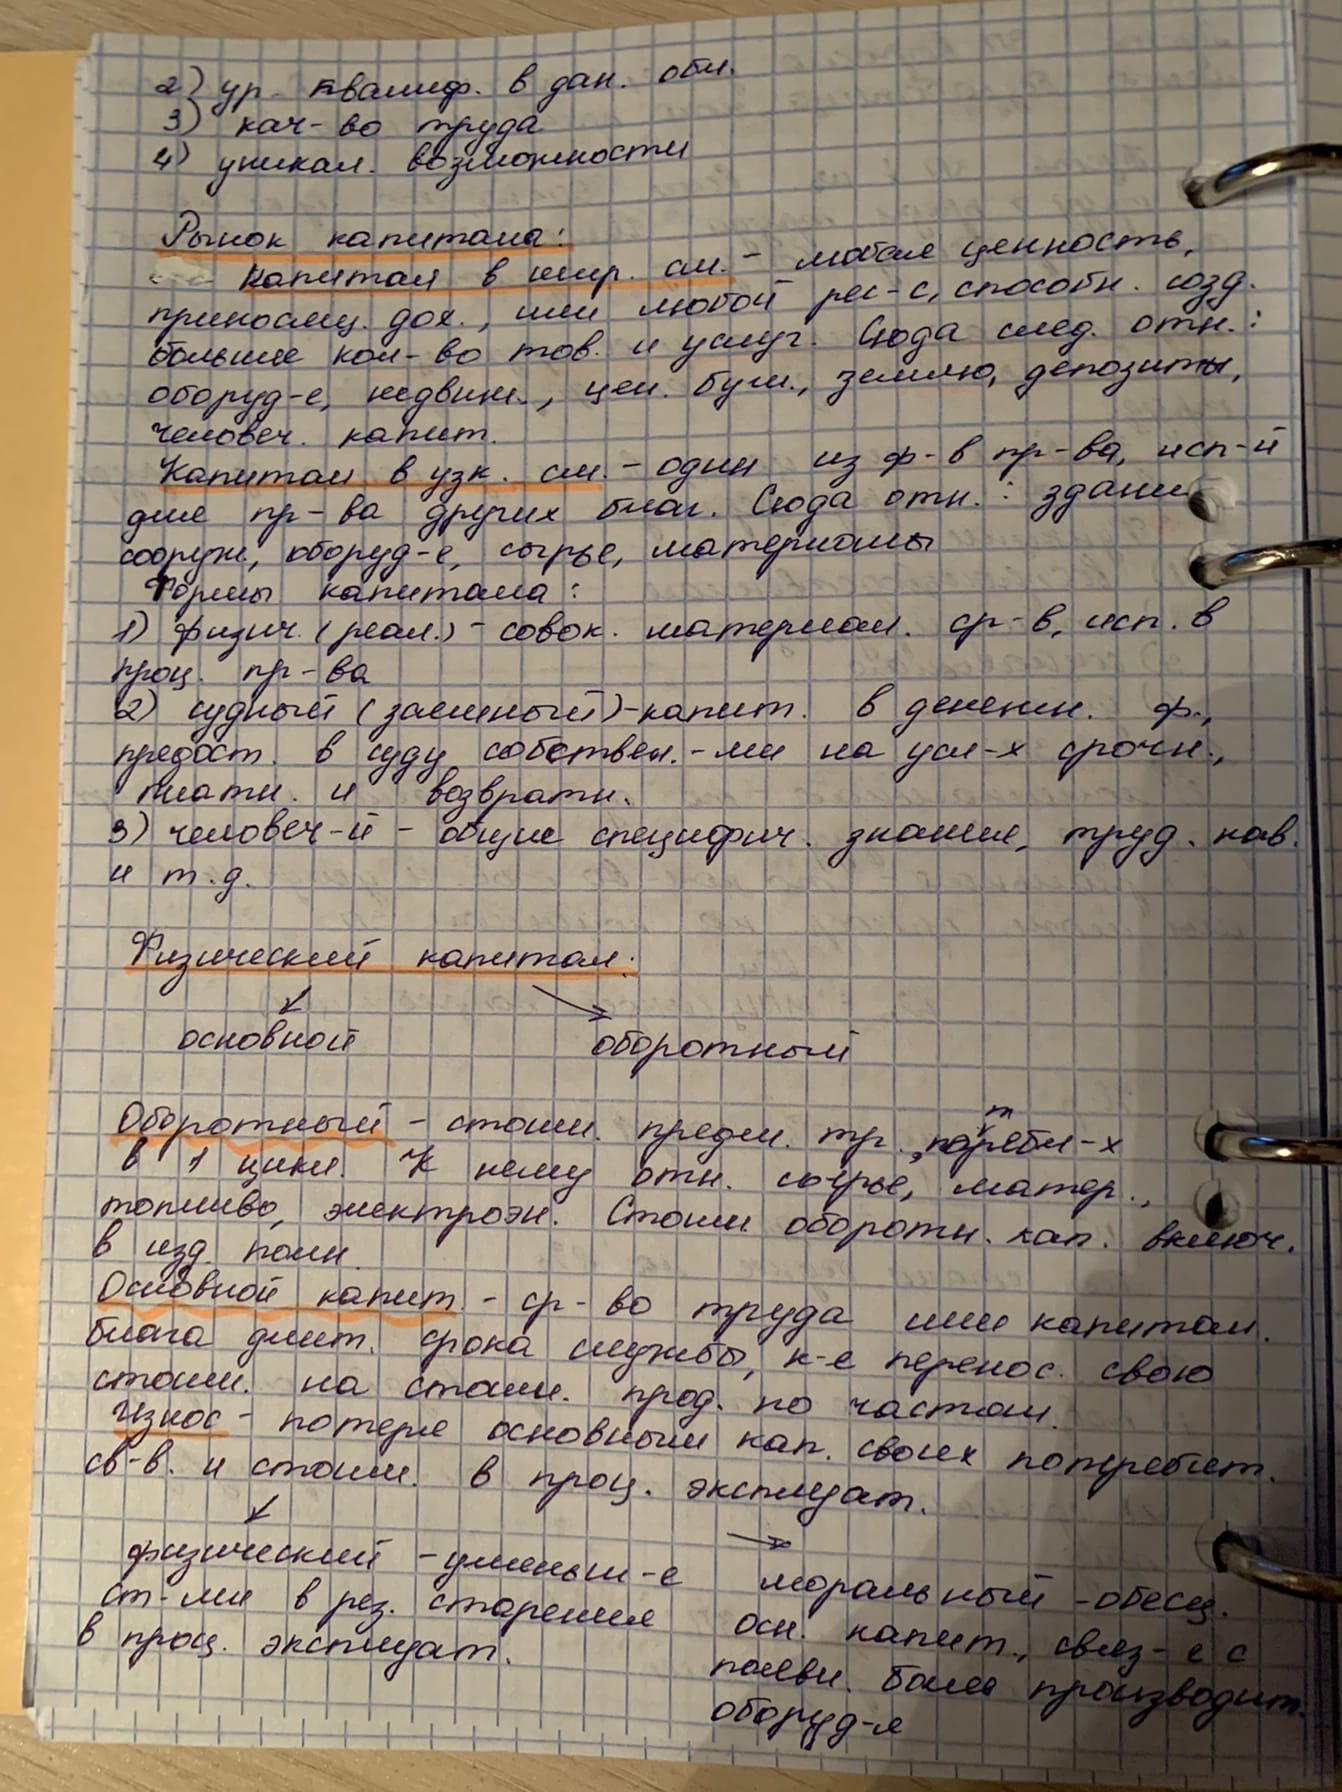 2) ур. квалиф. в дан. обл.
3) кач-во труда
4) уникал. возможности
Рынок капитала:
Капитал в шир. см. - любая ценность,
приносящ. дох., или любой рес-с, способн. созд.
большее кол-во тов. и услуг. Сюда след. отн.:
оборуд-е, недвиж., цен. бум., землю, депозиты,
человеч. капит.
Капитал в узк. см. - один из ф-в пр-ва, исп-й
для пр-ва других благ. Сюда отн.: здани
сооруж., оборуд-е, сырье, материалы
Формы капитала:
1) физич. (реал.) - совок. материал. ср-в, исп. в
проц. пр-ва
2) судный (заемный) - капит. в денежн. ф.,
предост. в суду собствен.-ми на усл-х срочн.,
платн. и возвратн.
3) человеч-й - общие специфич. знания, труд. нав.
и т.д.
Физический капитал:
основной оборотный
Оборотный - стоим. предм. тр., потребл-х
в 1 цикл. К нему отн. сырье, матер.,
топливо, электроэн. Стоим оборотн. кап. включ.
в изд. полн.
Основной капит. - ср-во труда или капитал.
блага длит. срока службы, к-е перенос. свою
стоим. на стоим. прод. по частям.
Износ - потеря основным кап. своих потребит.
св-в. и стоим. в проц. эксплуат.
физический - уменьш-е
ст-ми в рез. старения
в проц. эксплуат.
моральный - обесц.
осн. капит., связ-е с
появл. более производит.
оборуд-я